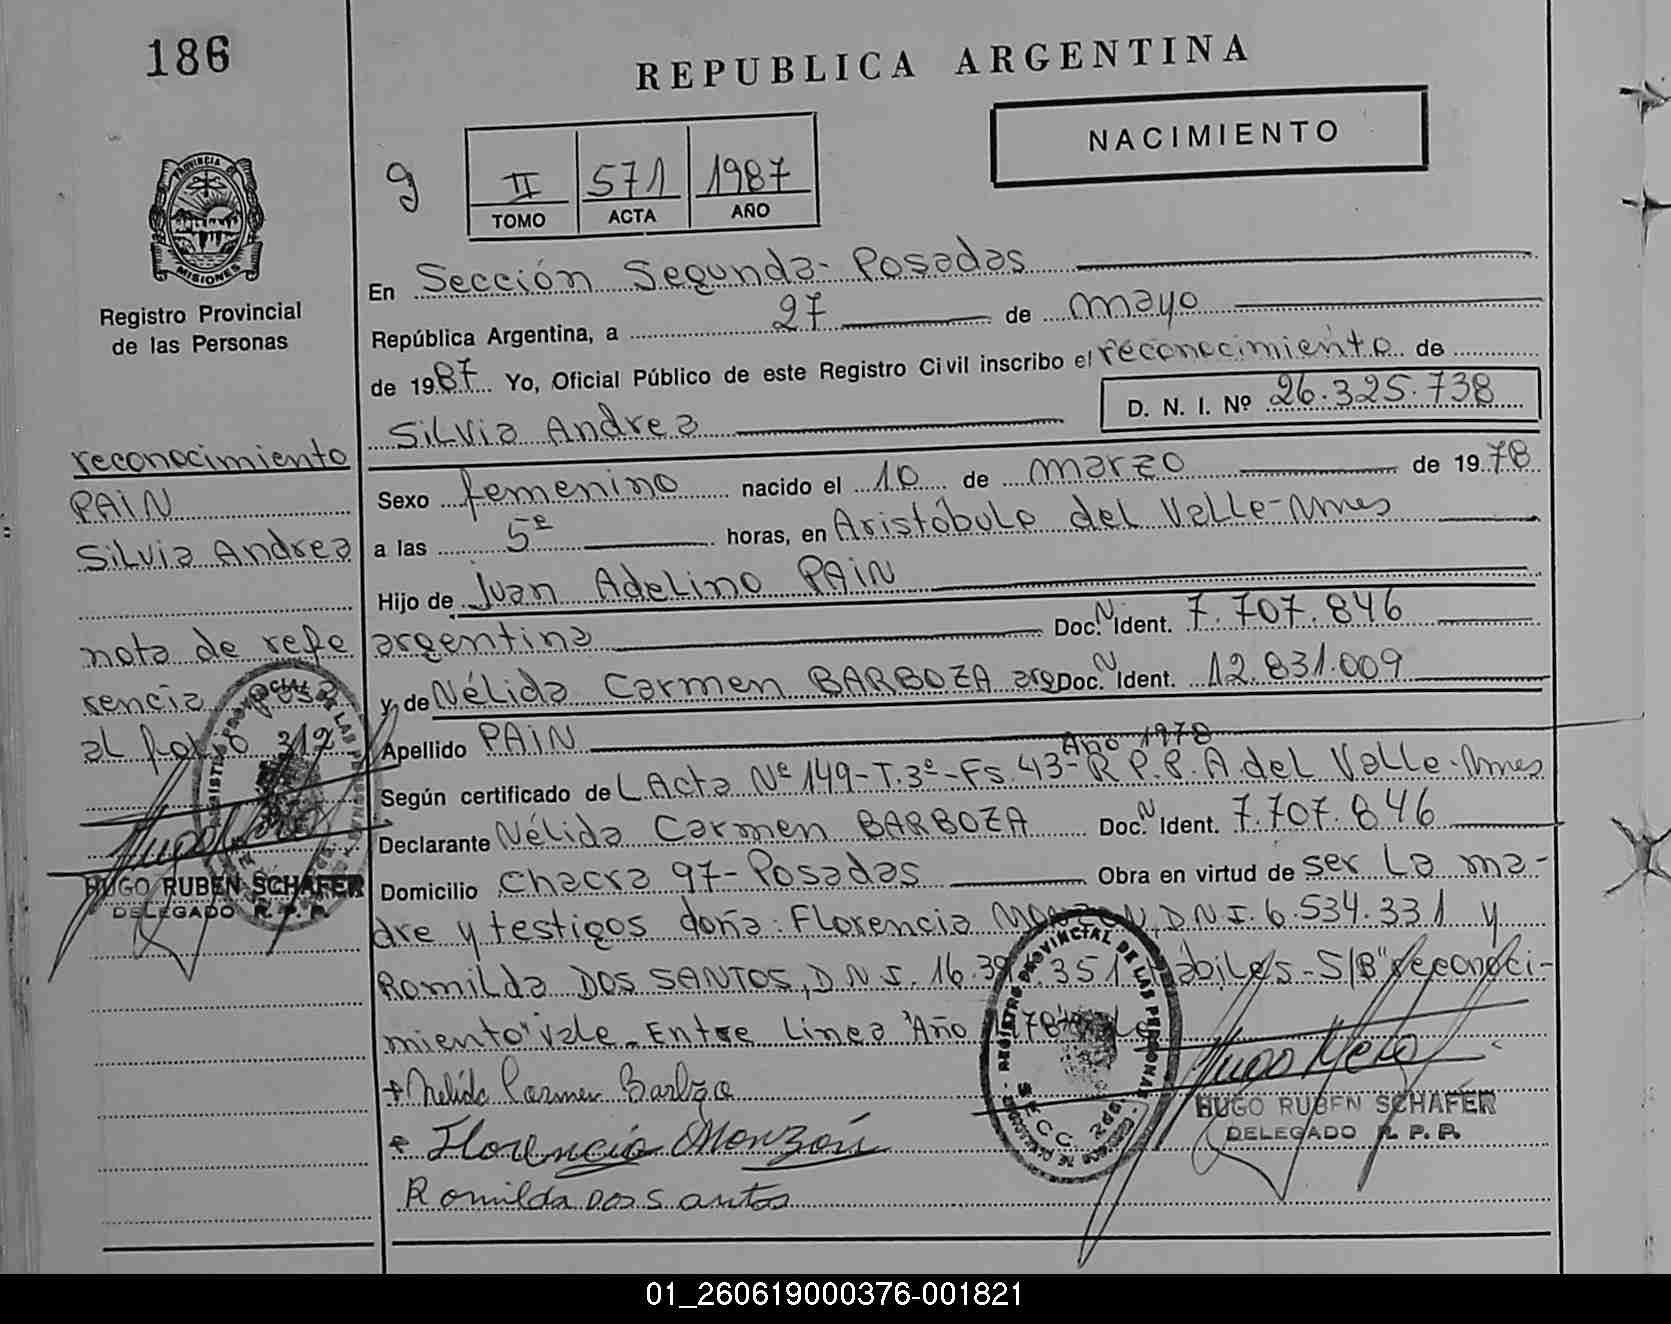 186
REPUBLICA ARGENTINA
NACIMIENTO
g
II 571 1987
TOMO ACTA AÑO
PROVINCIA D MISIONES
Registro Provincial
de las Personas
En Sección Segunda - Posadas
República Argentina, a 27 de mayo
de 1987 Yo, Oficial Público de este Registro Civil inscribo el reconocimiento de
Silvia Andrea D. N. I. Nº 26.325.738
Sexo femenino nacido el 10 de marzo de 1978
a las 5ª horas, en Aristóbulo del Valle-Mnes
Hijo de Juan Adelino PAIN
argentina Doc. N Ident. 7.707.846
y de Nélida Carmen BARBOZA arg Doc. N Ident. 12.831.009
Apellido PAIN
Año 1978
Según certificado de L Acta Nº 149-T.3º-Fs.43-R P.P. A. del Valle-Mnes
Declarante Nélida Carmen BARBOZA Doc. N Ident. 7.707.846
Domicilio Chacra 97-Posadas Obra en virtud de ser la ma-
dre y testigos doña: Florencia D.N.I. 6.534.331 y
Romilda DOS SANTOS, D.N.I. 16.39 351 ábiles - S/B "reconoci-
miento" vale - Entre Línea "Año 78"
+ Nelida Carmen Barboza
Florencia Monzón
Romilda Dos Santos
reconocimiento
PAIN
Silvia Andrea
nota de refe
rencia pasa
al folio 312
HUGO RUBEN SCHAFER
DELEGADO R. P. P.
REGISTRO PROVINCIAL DE LAS PERSONAS
SECC. 2da.
HUGO RUBEN SCHAFER
DELEGADO R. P. P.
01_260619000376-001821